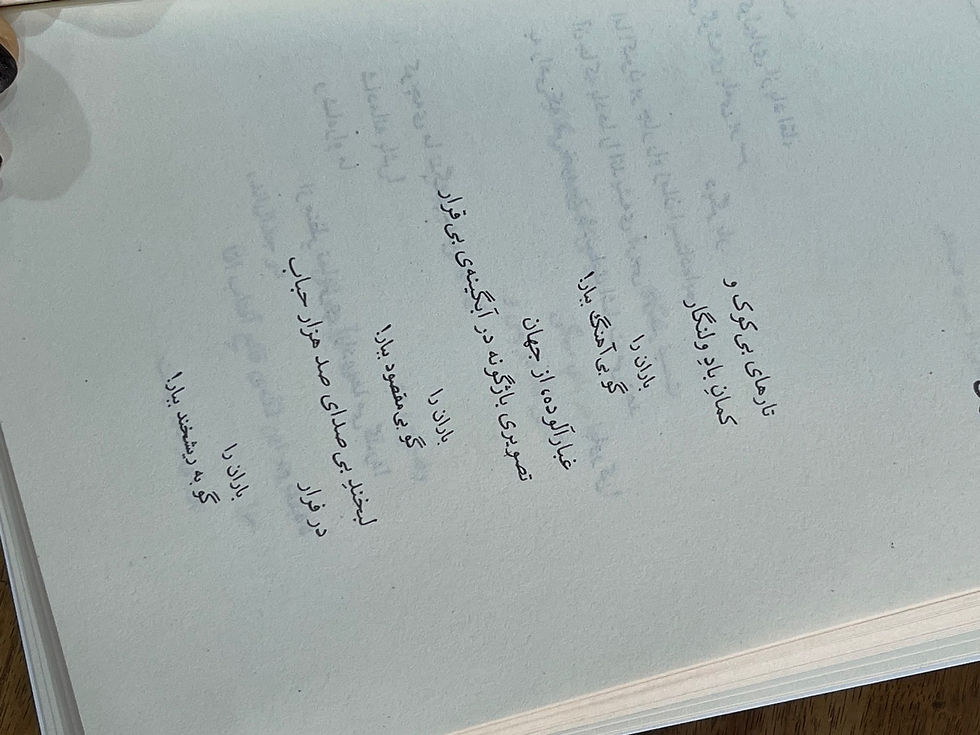 تارهای بی‌کوک و
کمانِ بادِ ولنگار
باران را
گو بی‌آهنگ ببار!
غبارآلوده، از جهان
تصویری باژگونه در آبگینه‌ی بی‌قرار
باران را
گو بی‌مقصود ببار!
لبخندِ بی‌صدای صد هزار حباب
در فرار
باران را
گو به ریشخند ببار!